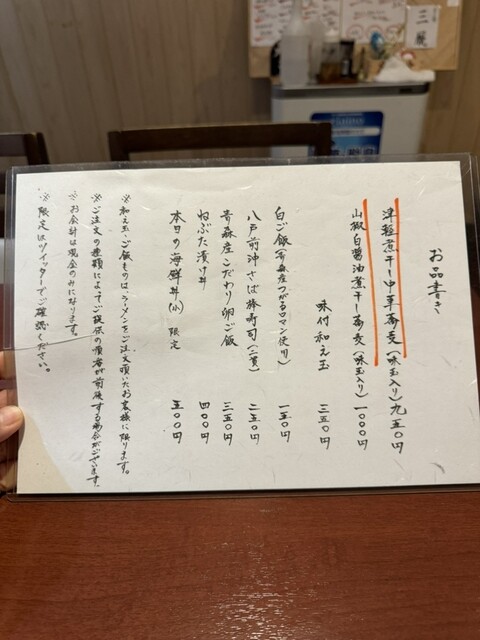 お品書き
津軽煮干し中華蕎麦(味玉入り)九五〇円
山椒白醤油煮干し蕎麦(味玉入り)一〇〇〇円
味付和え玉 三五〇円
白ご飯(青森産つがるロマン使用) 一五〇円
八戸前沖さば棒寿司(二貫) 二五〇円
青森産こだわり卵ご飯 三五〇円
ねぶた漬け丼 四〇〇円
本日の海鮮丼(小) 限定 五〇〇円
※和え玉・ご飯ものは、ラーメンをご注文頂いたお客様に限ります。
※ご注文の種類によってご提供の順番が前後する場合がございます。
※お会計は現金のみになります。
※限定はツイッターでご確認ください。
三